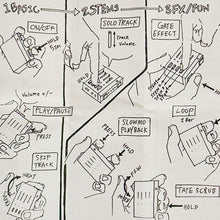 1 BASIC → 2 STEMS → 3 FX/FUN
ON/OFF
HOLD
5 sec
Volume +/-
PLAY/PAUSE
PRESS
SKIP TRACK
NEXT
SOLO TRACK
Track
Volume
HOLD
SLOWMO
PLAYBACK
PRESS
HOLD
GATE
EFFECT
HOLD
LOOP
1 Bar
HOLD
TAPE SCRUB
HOLD